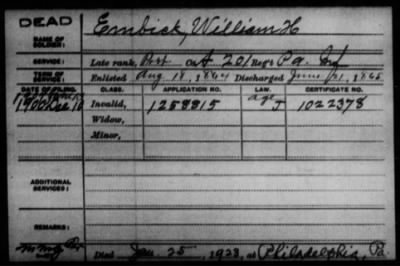 DEAD
Embick, William H
NAME OF SOLDIER:
SERVICE: Late rank, Co A 201 Reg't Pa Inf
TERM OF SERVICE: Enlisted Aug 18, 1864 Discharged June 21, 1865
DATE OF FILING. CLASS. APPLICATION NO. LAW. CERTIFICATE NO.
1900 Dec 10 Invalid, 1258815 age J 1022378
Widow,
Minor,
ADDITIONAL SERVICES:
REMARKS:
Died Jan. 25, 1923, at Philadelphia, Pa.